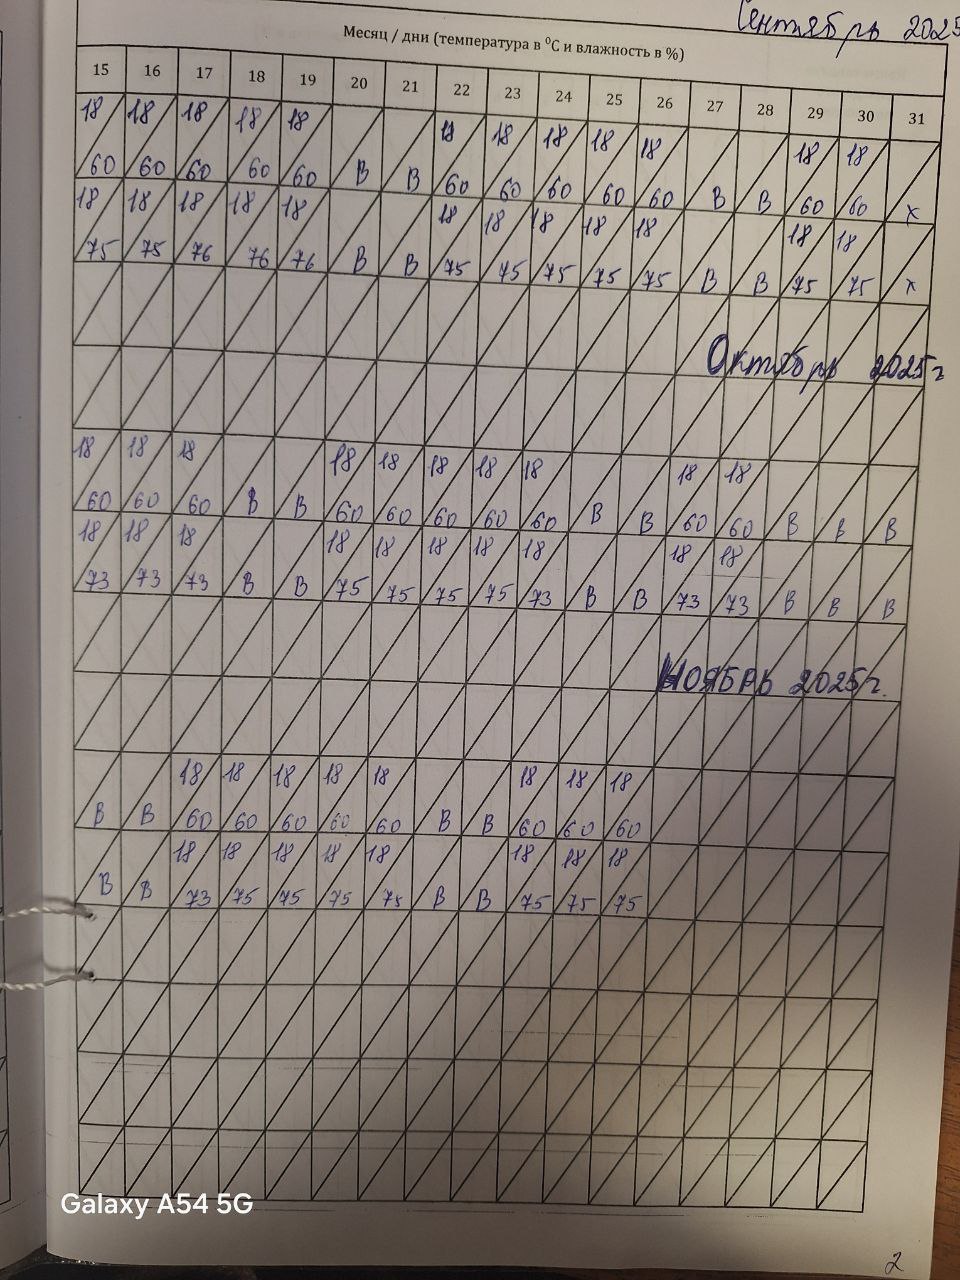 Сентябрь 2025
Месяц / дни (температура в ⁰С и влажность в %)
15 16 17 18 19 20 21 22 23 24 25 26 27 28 29 30 31
18 18 18 18 18 18 18 18 18 18 18 18
60 60 60 60 60 В В 60 60 60 60 60 В В 60 60 х
18 18 18 18 18 18 18 18 18 18 18 18
75 75 76 76 76 В В 75 75 75 75 75 В В 75 75 х
Октябрь 2025г
18 18 18 18 18 18 18 18 18 18
60 60 60 В В 60 60 60 60 60 В В 60 60 В В В
18 18 18 18 18 18 18 18 18 18
73 73 73 В В 75 75 75 75 73 В В 73 73 В В В
НОЯБРЬ 2025г.
18 18 18 18 18 18 18 18
В В 60 60 60 60 60 В В 60 60 60
18 18 18 18 18 18 18 18
В В 73 75 75 75 75 В В 75 75 75
Galaxy A54 5G
2